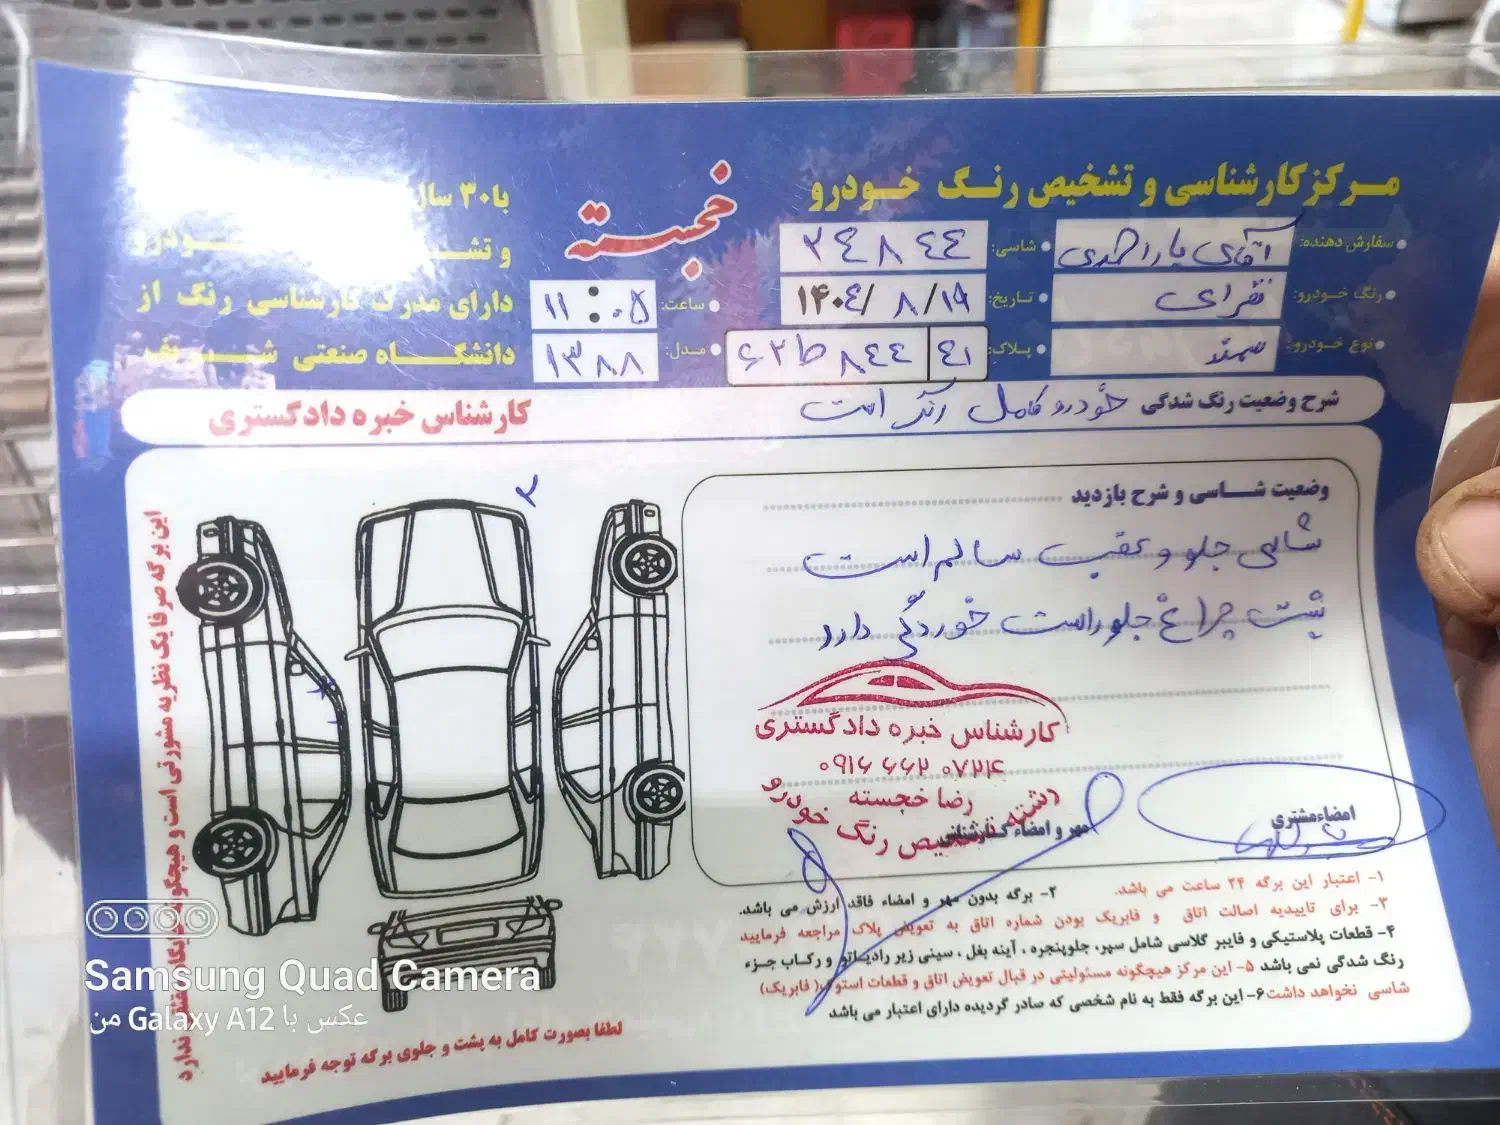 مرکز کارشناسی و تشخیص رنگ خودرو
خجسته
با ۳۰ سال
و تشـ ـودرو
دارای مدرک کارشناسی رنگ از
دانشگاه صنعتی شریف
سفارش دهنده: آقای یاراحمدی
شاسی: ۳۴۸۴۴
رنگ خودرو: نقرای
تاریخ: ۱۴۰۴/۸/۱۹
ساعت: ۱۱:۰۵
نوع خودرو: سمند
پلاک: ۴۱ ۸۴۴ ط ۶۲
مدل: ۱۳۸۸
شرح وضعیت رنگ شدگی خودرو کامل رنگ است
کارشناس خبره دادگستری
وضعیت شاسی و شرح بازدید
شاسی جلو و عقب سالم است
پشت چراغ جلو راست خوردگی دارد
کارشناس خبره دادگستری
۰۹۱۶ ۶۶۲ ۰۷۲۴
رضا خجسته
رشته تشخیص رنگ خودرو
مهر و امضاء کارشناس
امضاء مشتری
۱- اعتبار این برگه ۲۴ ساعت می باشد. ۲- برگه بدون مهر و امضاء فاقد ارزش می باشد.
۳- برای تاییدیه اصالت اتاق و فابریک بودن شماره اتاق به تعویض پلاک مراجعه فرمایید
۴- قطعات پلاستیکی و فایبر گلاسی شامل سپر، جلوپنجره ، آینه بغل ، سینی زیر رادیاتور و رکاب جزء
رنگ شدگی نمی باشد ۵- این مرکز هیچگونه مسئولیتی در قبال تعویض اتاق و قطعات استوک( فابریک)
شاسی نخواهد داشت ۶- این برگه فقط به نام شخصی که صادر گردیده دارای اعتبار می باشد
این برگه صرفا یک نظریه مشورتی است و هیچگونه ندارد
لطفا بصورت کامل به پشت و جلوی برگه توجه فرمایید
Samsung Quad Camera
عکس با Galaxy A12 من